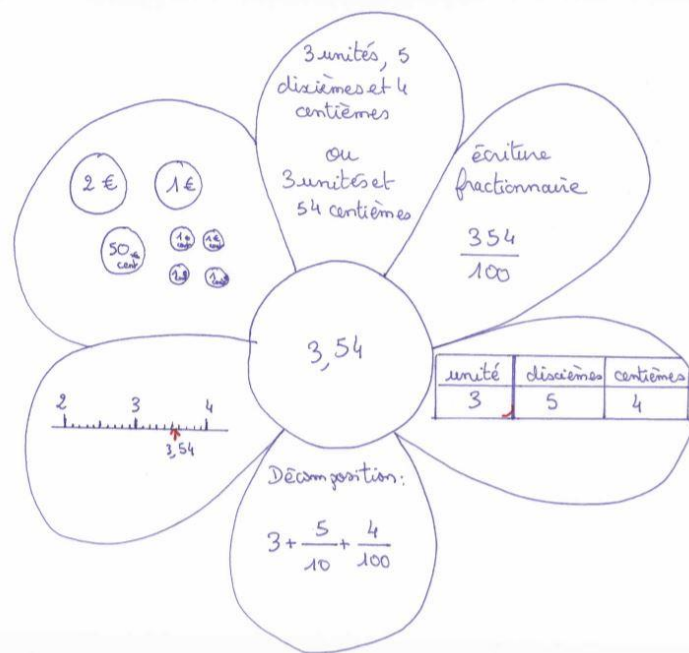 3 unités, 5
dixièmes et 4
centièmes
ou
3 unités et
54 centièmes
écriture
fractionnaire
354
100
2 €
1 €
50 €
cent
3,54
unité dixièmes centièmes
3 5 4
2 3 4
3,54
Décomposition :
3 + 5/10 + 4/100